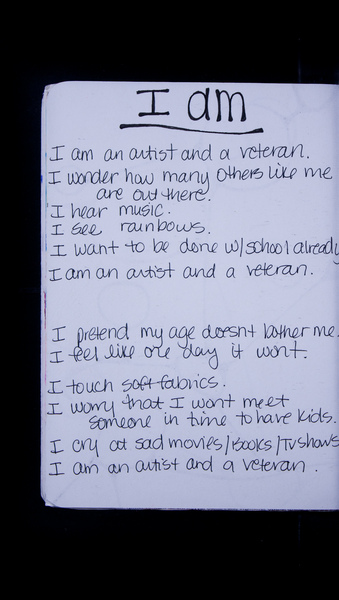 I am
I am an artist and a veteran.
I wonder how many others like me
are out there.
I hear music.
I see rainbows.
I want to be done w/school already
I am an artist and a veteran.
I pretend my age doesnt bother me.
I feel like one day it wont.
I touch soft fabrics.
I worry that I wont meet
someone in time to have kids.
I cry at sad movies/Books/TVshows
I am an artist and a veteran.